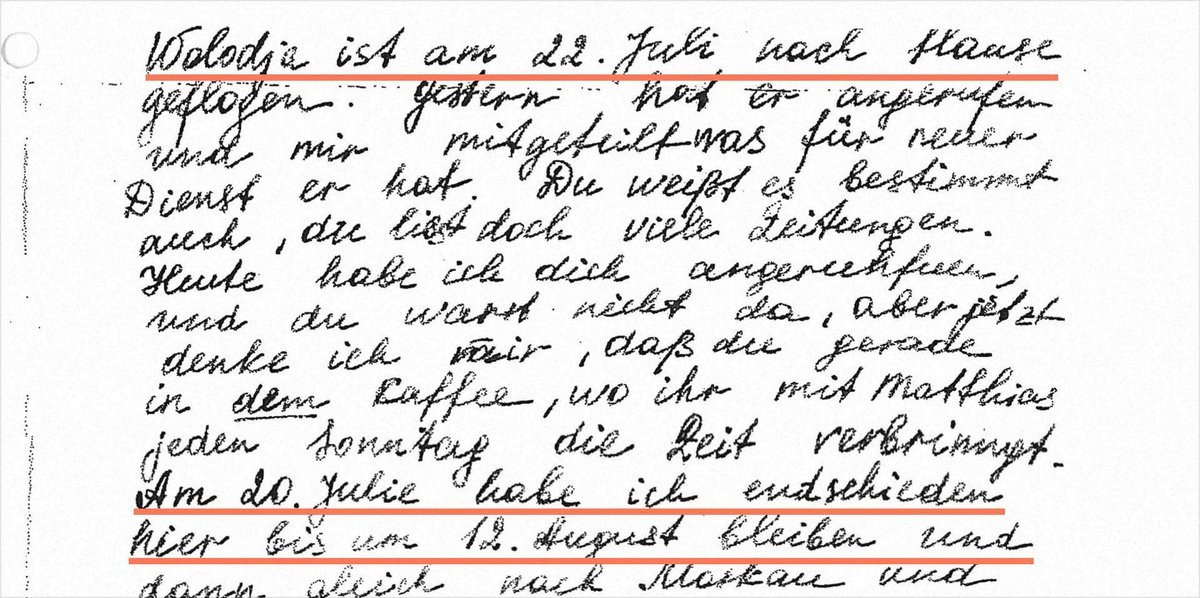 Wolodja ist am 22. Juli nach Hause
geflogen. gestern hat er angerufen
und mir mitgeteilt was für neuer
Dienst er hat. Du weißt es bestimmt
auch, du liest doch viele Zeitungen.
Heute habe ich dich angeruhfuen,
und du warst nicht da, aber jetzt
denke ich mir, daß du gerade
in dem Kaffee, wo ihr mit Matthias
jeden Sonntag die Zeit verbrinngt.
Am 20. Julie habe ich endschieden
hier bis um 12. August bleiben und
dann gleich nach Moskau und